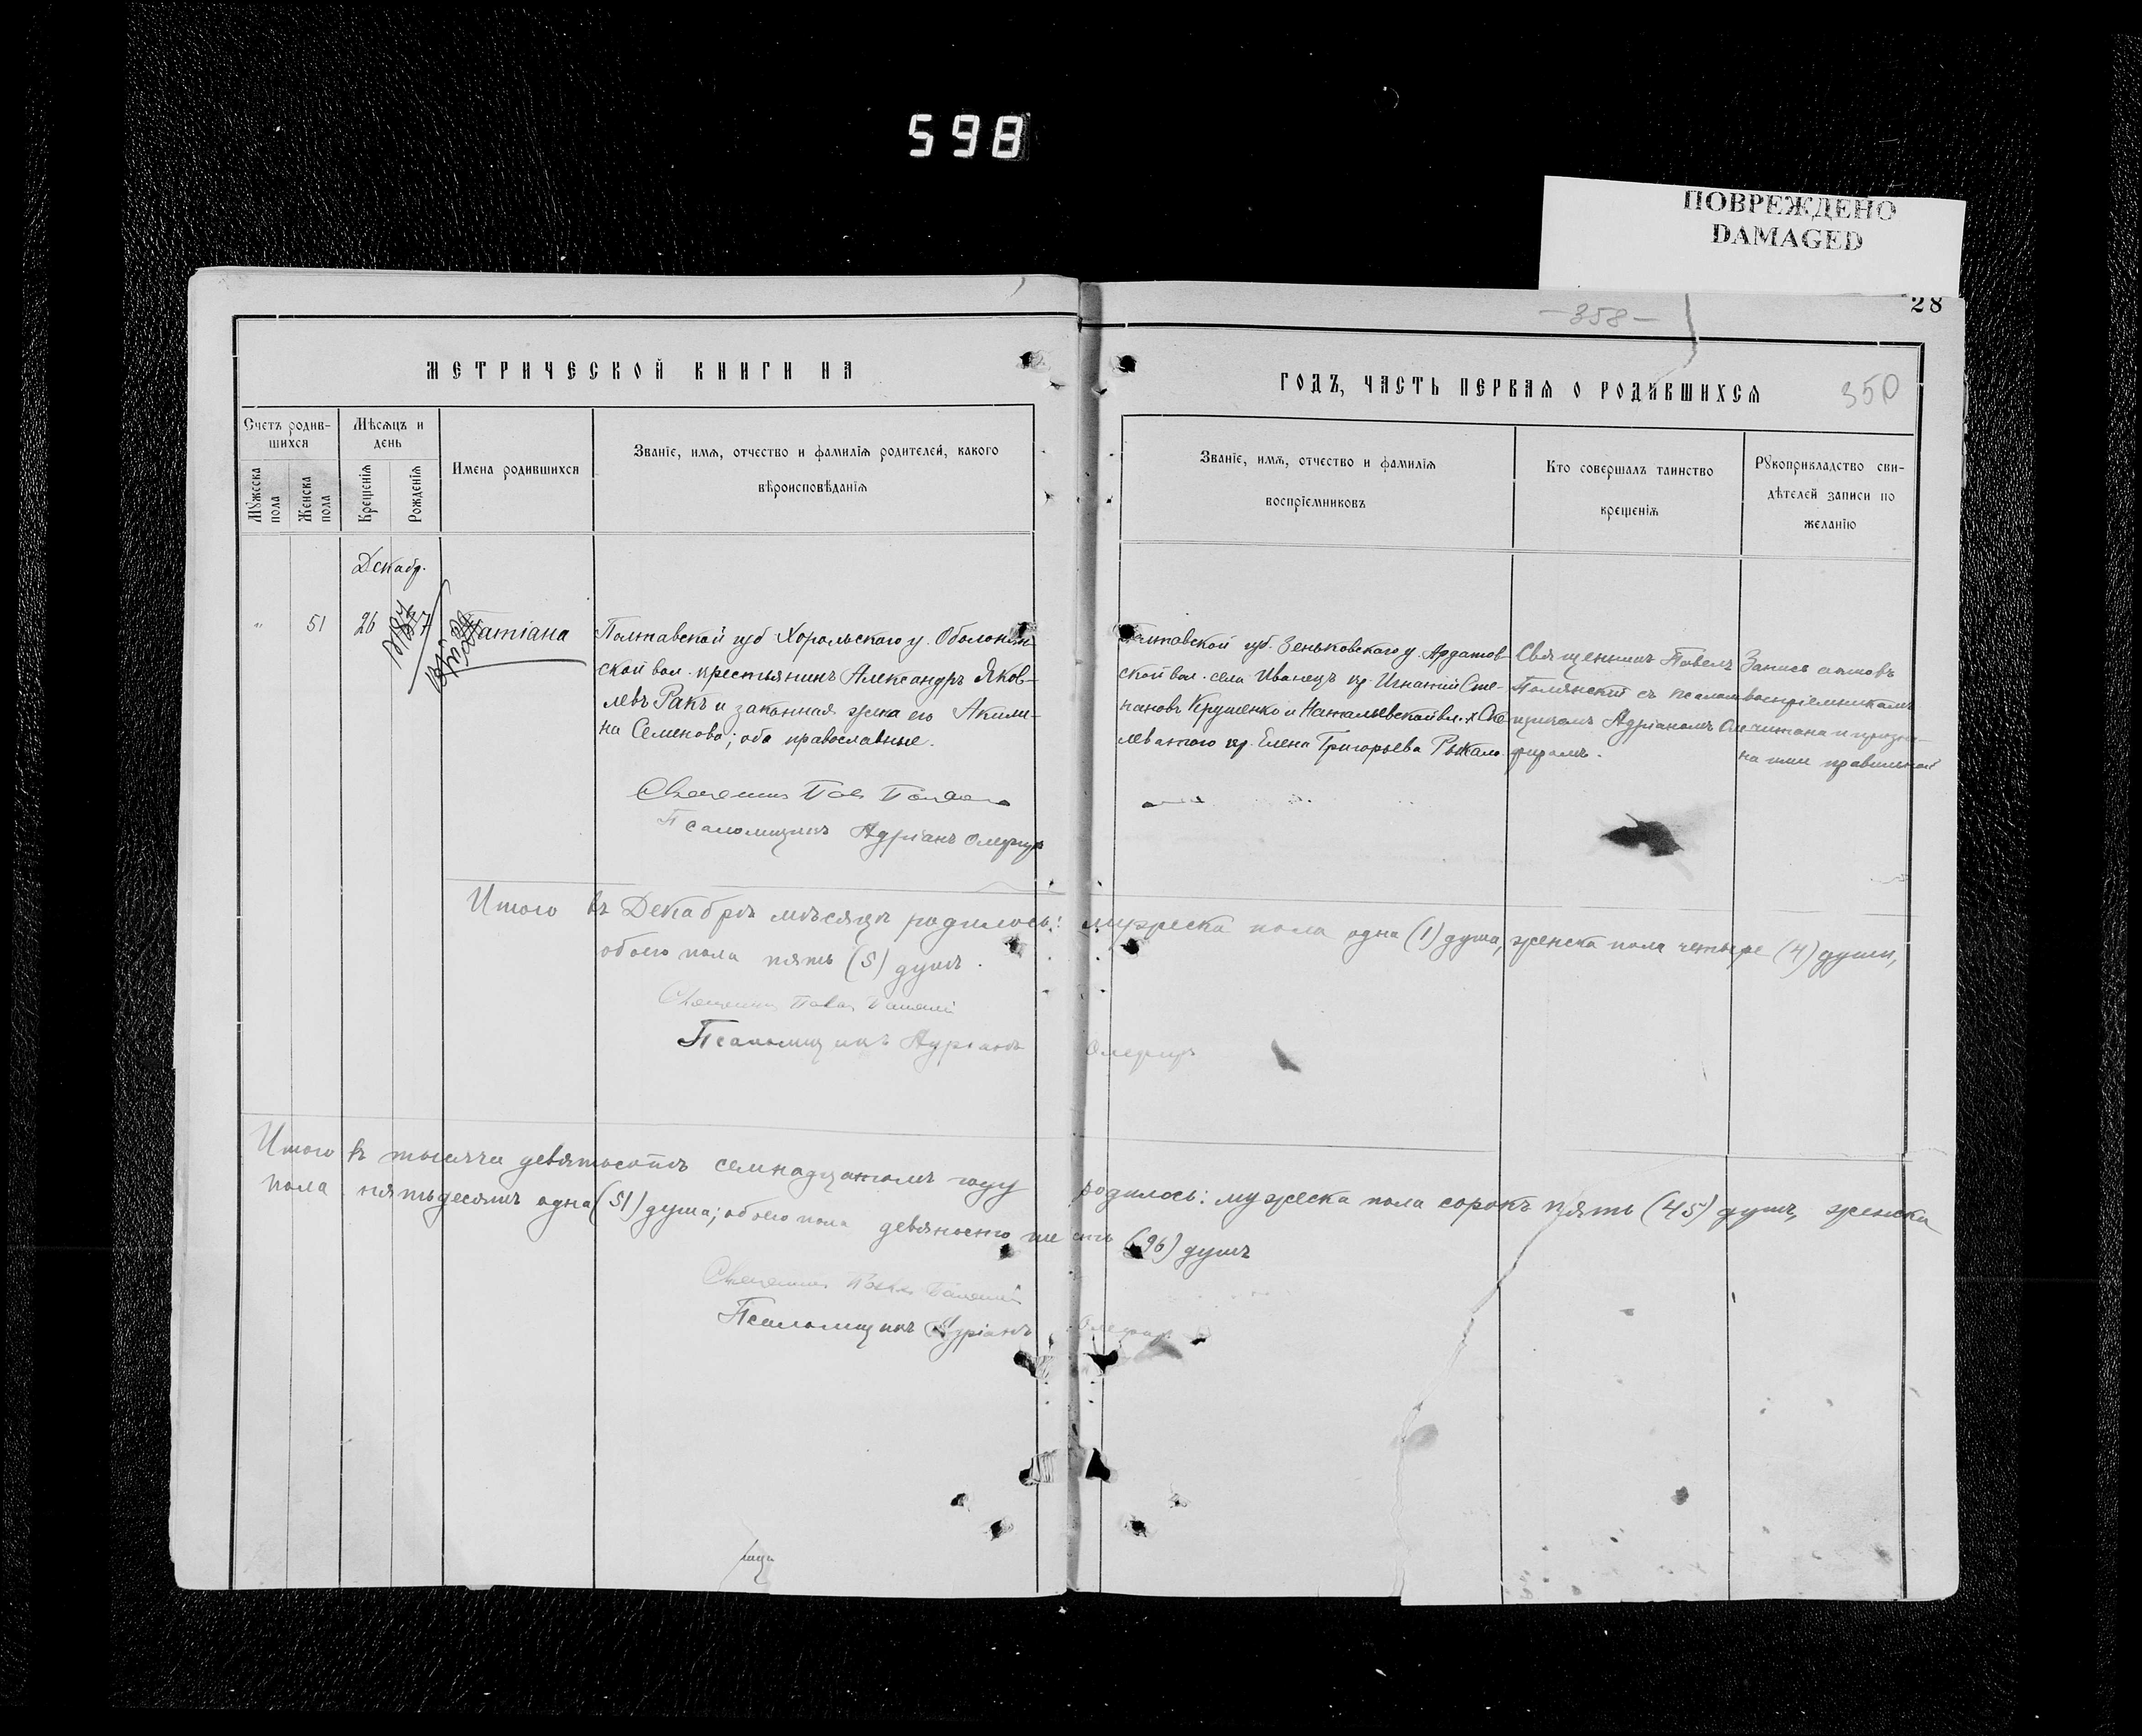 598
ПОВРЕЖДЕНО
DAMAGED
28
-358-
350
МЕТРИЧЕСКОЙ КНИГИ НА
ГОДЪ, ЧАСТЬ ПЕРВАЯ О РОДИВШИХСЯ
Счетъ родив-
шихся
Мужеска пола
Женска пола
Мѣсяцъ и
день
Крещенія
Рожденія
Имена родившихся
Званіе, имя, отчество и фамилія родителей, какого
вѣроисповѣданія
Званіе, имя, отчество и фамилія
воспріемниковъ
Кто совершалъ таинство
крещенія
Рукоприкладство сви-
дѣтелей записи по
желанію
Декабр.
"
51
26
Татіана
Полтавской губ Хорольскаго у. Оболон
ской вол. крестьянинъ Александръ Яков-
левъ Ракъ и законная жена его Акили-
на Семенова; оба православные.
Псаломщикъ Адріанъ Олефиръ
Полтавской губ. Зеньковскаго у.
ской вол. села Иванецъ кр. Игнатій Сте-
пановъ Крушенко и Натальевской вл. х
кр. Елена Григорьева
Священникъ Павелъ
съ псалом
щикомъ Адріаномъ Оле
фиромъ.
Запись актовъ
воспріемникамъ
читана и призна-
на ими правильной
Итого въ Декабрѣ мѣсяцѣ родилось: мужеска пола одна (1) душа, женска пола четыре (4) души,
обоего пола пять (5) душъ.
Псаломщикъ Адріанъ Олефиръ
Итого въ тысяча девятьсотъ семнадцатомъ году родилось: мужеска пола сорокъ пять (45) душъ, женска
пола пятьдесятъ одна (51) душа; обоего пола девяносто шесть (96) душъ
Псаломщикъ Адріанъ Олефиръ